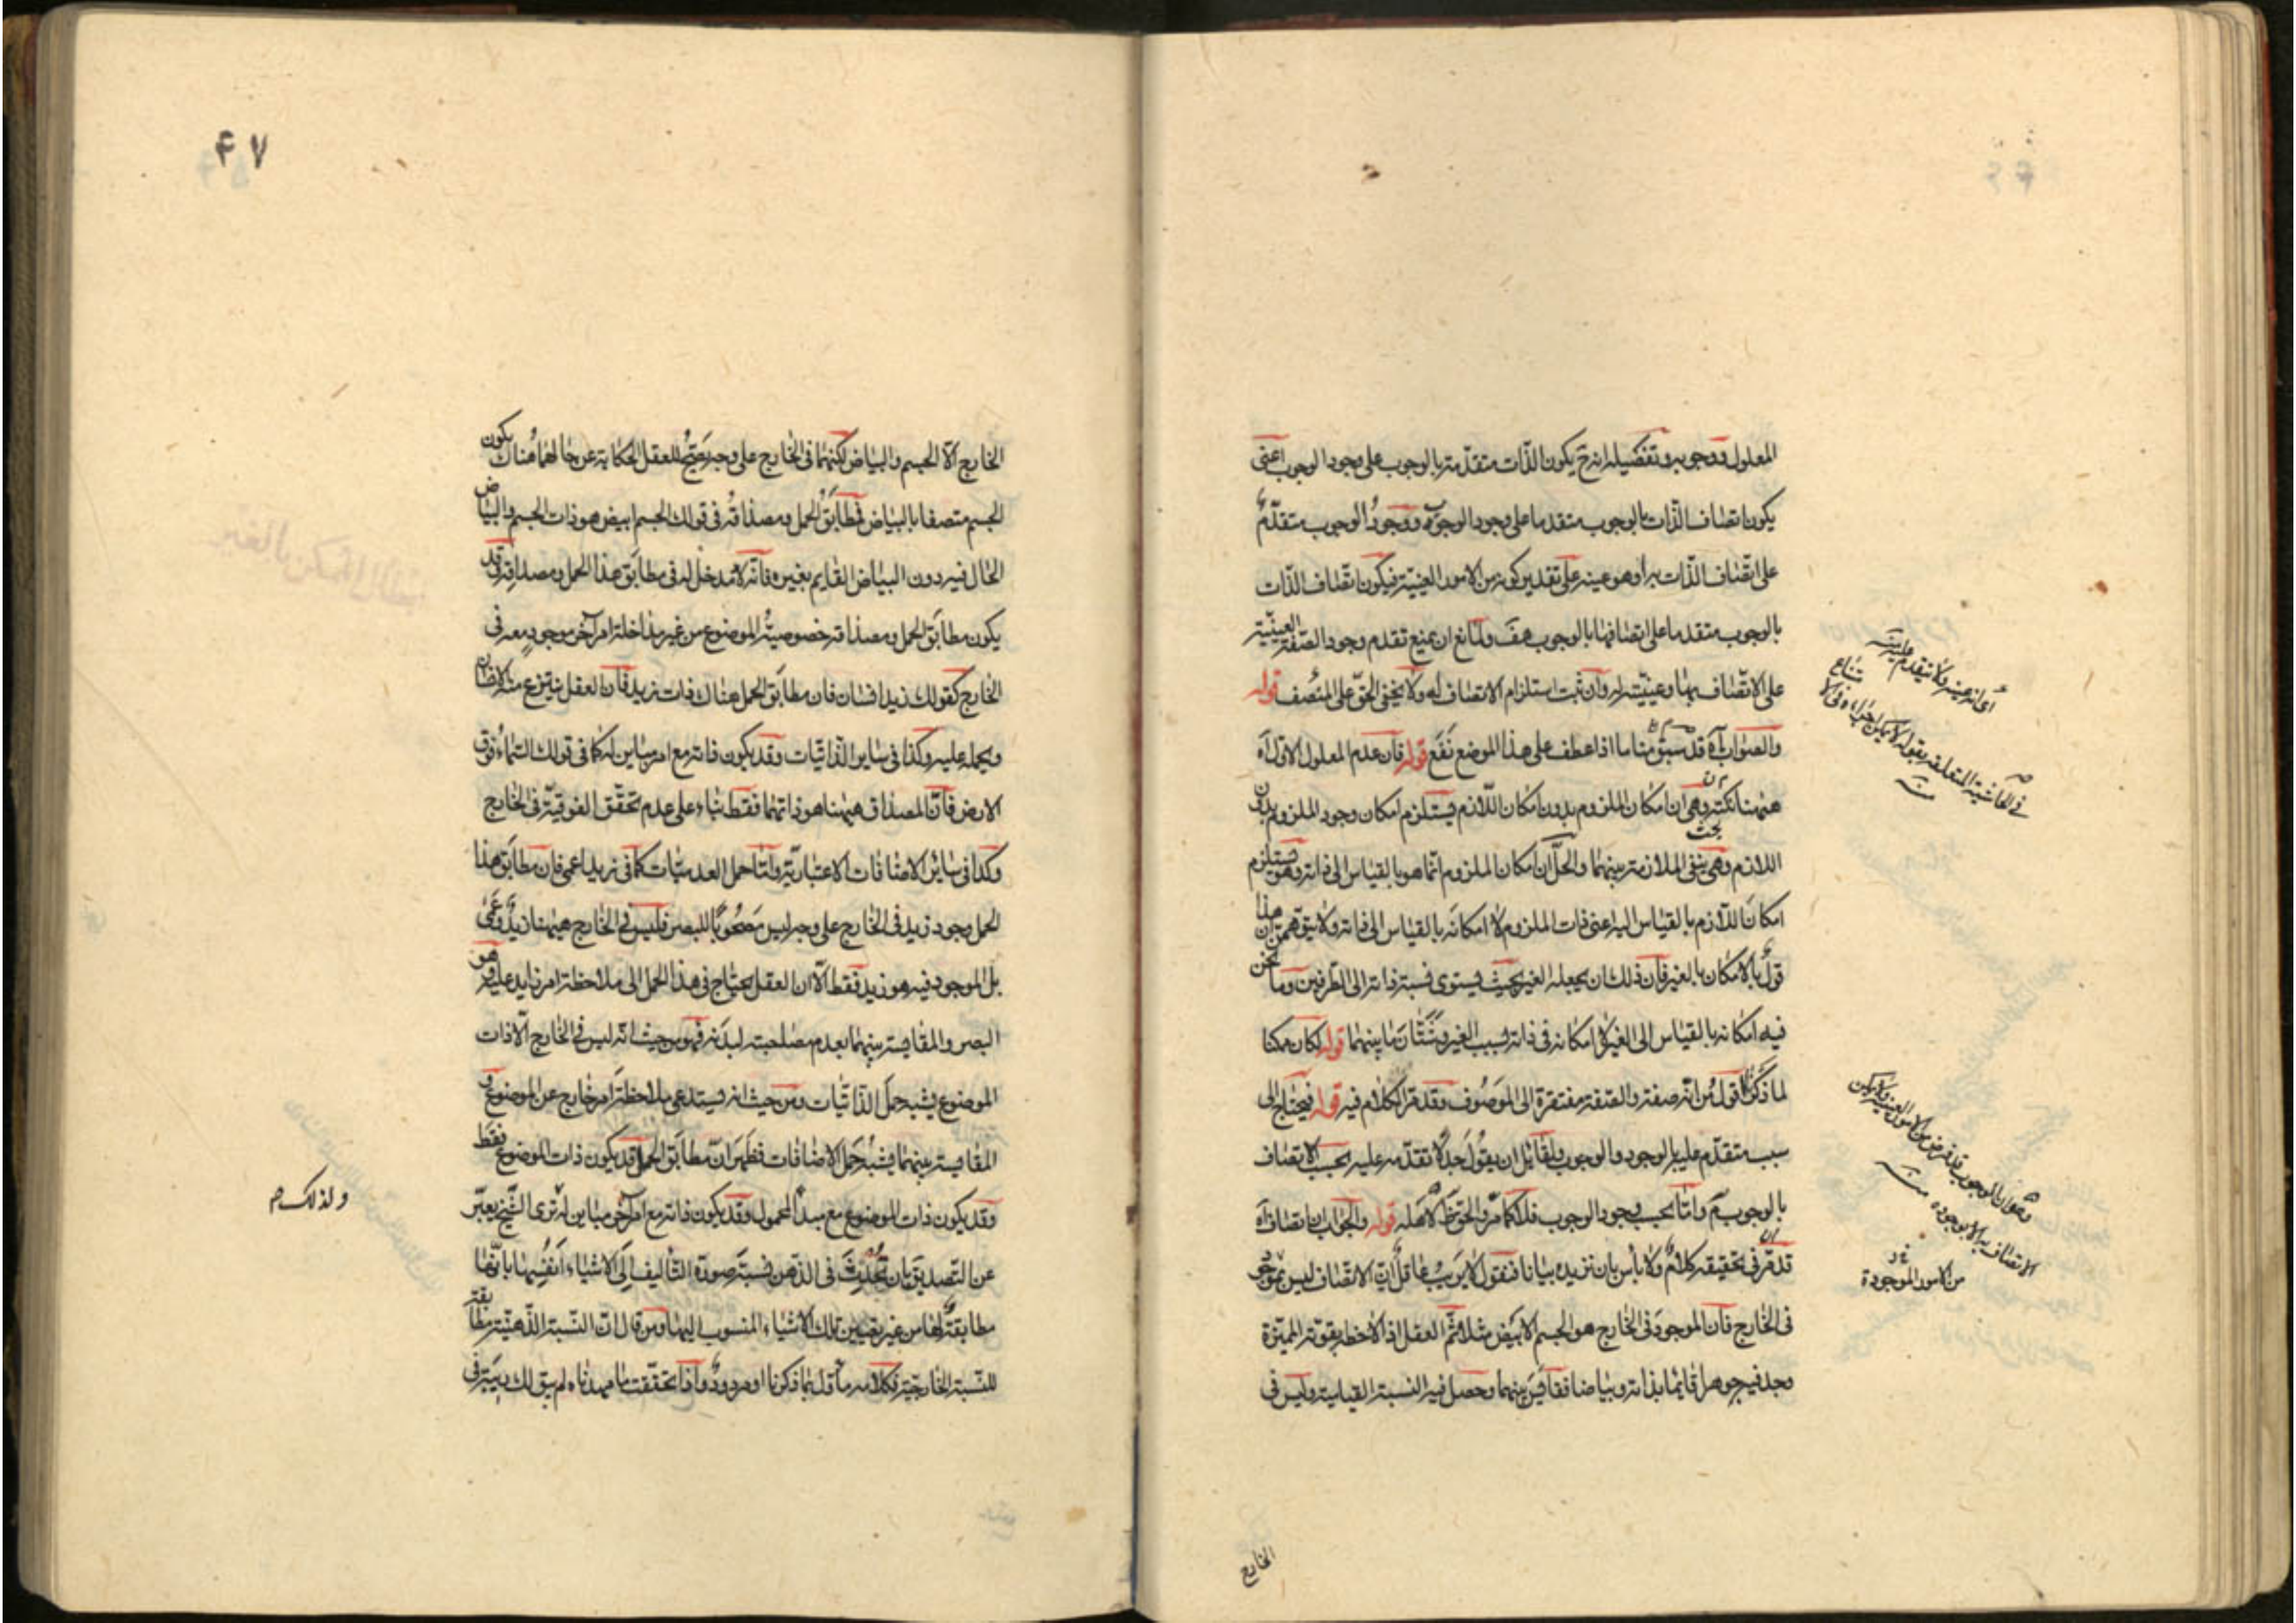 المعلول ووجوبه وتفصيله انه ح يكون الذات متقدمة بالوجوب على وجود الوجوب اعنى
يكون اتصاف الذات بالوجوب متقدما على وجود الوجوب ووجود الوجوب متقدم
على اتصاف الذات به او هو عينه على تقدير كونه من الامور العينية فيكون اتصاف الذات
بالوجوب متقدما على اتصافها بالوجوب هف ولمانع ان يمنع تقدم وجود الصفة العينية
على الاتصاف بها وعينيته له وان ثبت استلزام الاتصاف له ولا يخفى الحق على المنصف قوله
والصواب آه قد سبق منا ما اذا عطف على هذا الموضع نفع قوله فان عدم المعلول الاول آه
ههنا نكتة وهى ان امكان الملزوم بدون امكان اللازم يستلزم امكان وجود الملزوم بدون
اللازم وهى ينفى الملازمة بينهما والحل ان امكان الملزوم انما هو بالقياس الى ذاته وهو يستلزم
امكان اللازم بالقياس اليه اعنى ذات الملزوم لا امكانه بالقياس الى ذاته ولا يتوهمن ان هذا
قول بالامكان بالغير فان ذلك ان يجعله الغير بحيث يستوى نسبة ذاته الى الطرفين وما نحن
فيه امكانه بالقياس الى الغير لا امكانه فى ذاته بسبب الغير وشتان ما بينهما قوله لكان ممكنا
لما ذكر اقول من انه صفة والصفة مفتقرة الى الموصوف وقد مر الكلام فيه قوله فيحتاج الى
سبب متقدم عليه بالوجود والوجوب ولقائل ان يقول جدلا تقدمه عليه بحسب الاتصاف
بالوجوب م واما بحسب وجود الوجوب فلا كما مر والحق لاهله قوله والجواب ان اتصاف آه
قد مر فى تحقيقه كلام ولا باس بان نزيده بيانا فنقول لا ريب فى ان الاتصاف ليس بموجود
فى الخارج فان الموجود فى الخارج هو الجسم الابيض مثلا ثم العقل اذا لاحظه بقوته المميزة
وجد فيه جوهرا قائما بذاته وبياضا فقايس بينهما وحصل فيه النسبة القياسية وليس فى
اى انه عينه ولا يتقدم عليه منه
فى الحاشية المتعلقة بقوله
الاتصاف به الا بوجوده منه
من الامور الموجودة
الخارج
۴۷
الخارج الا الجسم والبياض لكنهما فى الخارج على وجه يصح للعقل الحكاية عن حالهما هناك يكون
الجسم متصفا بالبياض فمطابق الحمل ومصداقه فى قولك الجسم ابيض هو ذات الجسم والبياض
الحال فيه دون البياض القايم بغيره فانه لا مدخل له فى مطابق هذا الحمل ومصداقه وقد
يكون مطابق الحمل ومصداقه خصوصية الموضوع من غير مداخلة امر آخر موجود معه فى
الخارج كقولك زيد انسان فان مطابق الحمل هناك ذات زيد فان العقل ينتزع منه الانسان
ويحمله عليه وكذا فى ساير الذاتيات وقد يكون ذاته مع امر مباين له كما فى قولك السماء فوق
الارض فان المصداق ههنا هو ذاتهما فقط بناء على عدم تحقق الفوقية فى الخارج
وكذا فى ساير الاضافات الاعتبارية واما حمل العدميات كما فى زيد اعمى فان مطابق هذا
الحمل وجود زيد فى الخارج على وجه ليس مصحوبا بالبصر فليس فى الخارج ههنا زيد وعمى
بل الموجود فيه هو زيد فقط الا ان العقل يحتاج فى هذا الحمل الى ملاحظة امر زايد عليه وهو
البصر والمقايسة بينهما بعدم مصاحبته له فهو من حيث انه ليس فى الخارج الا ذات
الموضوع يشبه حمل الذاتيات ومن حيث انه يستدعى ملاحظة امر خارج عن الموضوع و
المقايسة بينهما يشبه حمل الاضافات فظهر ان مطابق الحمل قد يكون ذات الموضوع فقط
وقد يكون ذات الموضوع مع مبدأ المحمول وقد يكون ذاته مع امر آخر مباين له ترى الشيخ يعبر
عن التصديق بان تحدث فى الذهن نسبة صورة التأليف الى الاشياء انفسها بانها
مطابقة لها من غير تعيين تلك الاشياء المنسوب اليها ومن قال ان النسبة الذهنية مطابقة
للنسبة الخارجية فكلامه مأول بما ذكرنا او مردود واذا تحققت ما مهدناه لم يبق لك ريبة فى
ولذلك صح